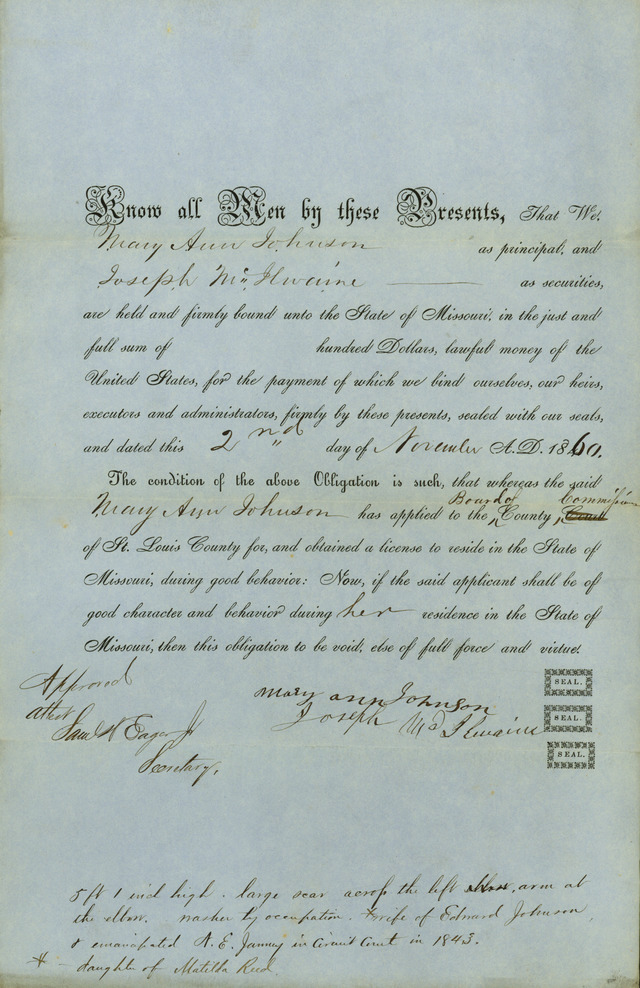 Know all Men by these Presents, That We,
Mary Ann Johnson as principal, and
Joseph McIlwaine as securities,
are held and firmly bound unto the State of Missouri, in the just and
full sum of hundred Dollars, lawful money of the
United States, for the payment of which we bind ourselves, our heirs,
executors and administrators, firmly by these presents, sealed with our seals,
and dated this 2nd day of November A. D. 1860.
The condition of the above Obligation is such, that whereas the said
Board of Commission
Mary Ann Johnson has applied to the County Court
of St. Louis County for, and obtained a license to reside in the State of
Missouri, during good behavior: Now, if the said applicant shall be of
good character and behavior during her residence in the State of
Missouri, then this obligation to be void, else of full force and virtue.
Approved
attest
Saml H Eager Jr
Secretary,
Mary ann Johnson
Joseph McIlwaine
SEAL.
SEAL.
SEAL.
5 ft 1 inch high. large scar across the left arm at
the elbow. washer by occupation. wife of Edward Johnson,
& emancipated in Circuit Court in 1843.
* daughter of Matilda Reed.